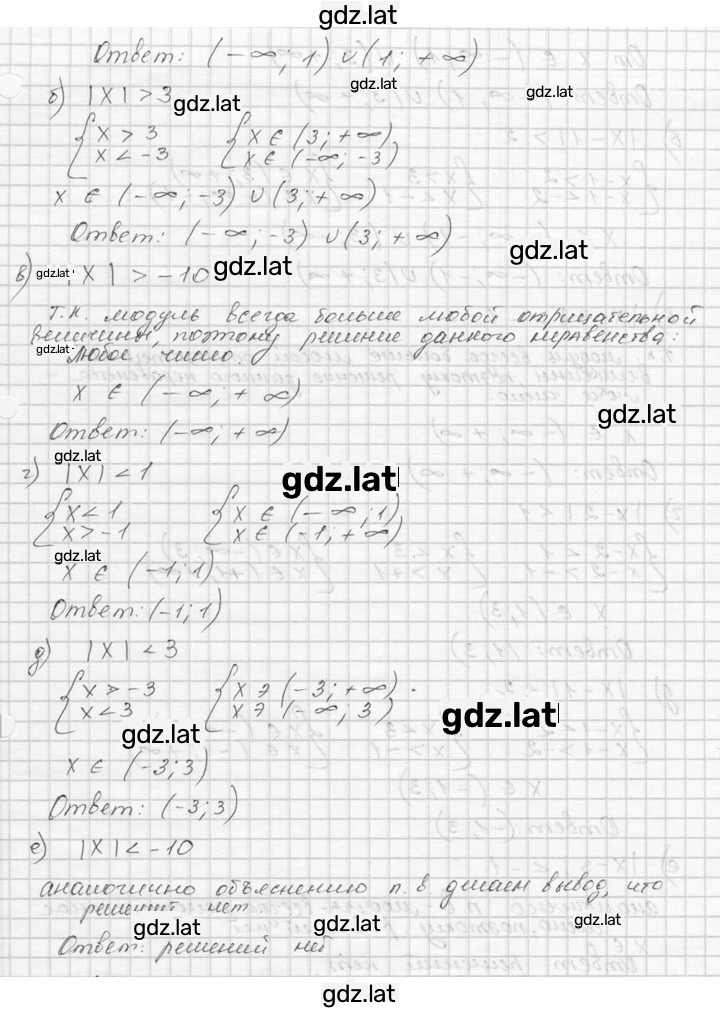 gdz.lat
Ответ: (-∞; 1) ∪ (1; +∞)
gdz.lat
б) |x| > 3 gdz.lat gdz.lat
{ x > 3 { x ∈ (3; +∞)
x < -3 x ∈ (-∞; -3)
x ∈ (-∞; -3) ∪ (3; +∞)
Ответ: (-∞; -3) ∪ (3; +∞)
gdz.lat
в) gdz.lat |x| > -10 gdz.lat
т.к. модуль всегда больше любой отрицательной
величины, поэтому решение данного неравенства:
gdz.lat
любое число.
x ∈ (-∞; +∞)
gdz.lat
Ответ: (-∞; +∞)
gdz.lat
г) |x| < 1 gdz.lat
{ x < 1 { x ∈ (-∞; 1)
x > -1 x ∈ (-1; +∞)
gdz.lat
x ∈ (-1; 1)
Ответ: (-1; 1)
д) |x| < 3
{ x > -3 { x ∋ (-3; +∞).
x < 3 x ∋ (-∞; 3) gdz.lat
gdz.lat
x ∈ (-3; 3)
Ответ: (-3; 3)
е) |x| < -10
аналогично объяснению п. в делаем вывод, что
решений нет.
gdz.lat gdz.lat gdz.lat
Ответ: решений нет.
gdz.lat